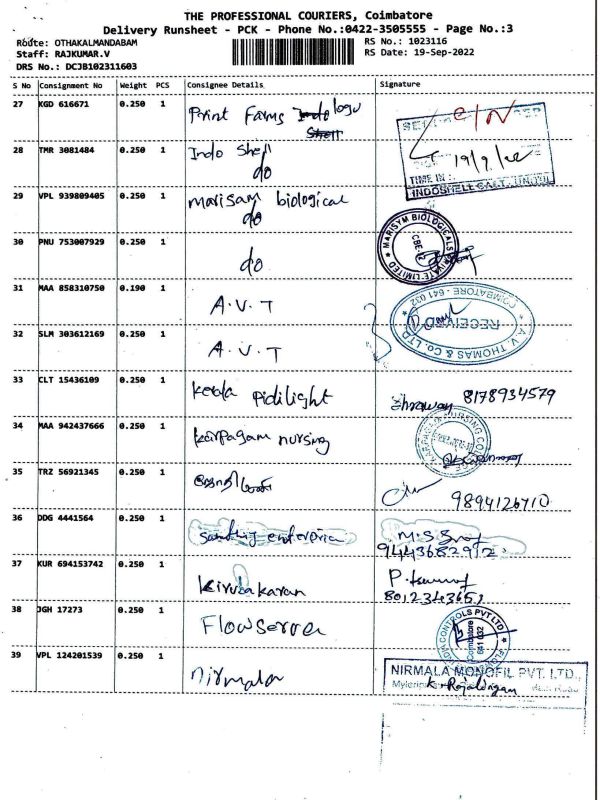 THE PROFESSIONAL COURIERS, Coimbatore
Delivery Runsheet - PCK - Phone No.:0422-3505555 - Page No.:3
Route: OTHAKALMANDABAM
RS No.: 1023116
Staff: RAJKUMAR.V
RS Date: 19-Sep-2022
DRS No.: DCJB102311603
S No Consignment No Weight PCS Consignee Details Signature
27 KGD 616671 0.250 1 Print Farms
28 TMR 3081484 0.250 1 Indo Shell
do
19/9/22
TIME IN :
INDOSHELL CAST
29 VPL 939809405 0.250 1 Marisam biological
do
30 PNU 753007929 0.250 1 do
MARISYM BIOLOGICALS PRIVATE LIMITED
CBE-
31 MAA 858310750 0.190 1 A.V.T
A.V. THOMAS & CO. LTD.
COIMBATORE - 641 032
RECEIVED
32 SLM 303612169 0.250 1 A.V.T
33 CLT 15436109 0.250 1 kerala pidilight
8178934579
34 MAA 942437666 0.250 1 karpagam nursing
KARPAGAM NURSING CO
35 TRZ 56921345 0.250 1
9894126710
36 DDG 4441564 0.250 1 enterprice
M.S.
9443682912
37 KUR 694153742 0.250 1 kirubakaran
P.
8012343651
38 JGH 17273 0.250 1 Flowserver
CONTROLS PVT LTD
Coimbatore
641 032
39 VPL 124201539 0.250 1 Nirmala
NIRMALA MONOFIL PVT. LTD.,
K. Rajalingam
Road